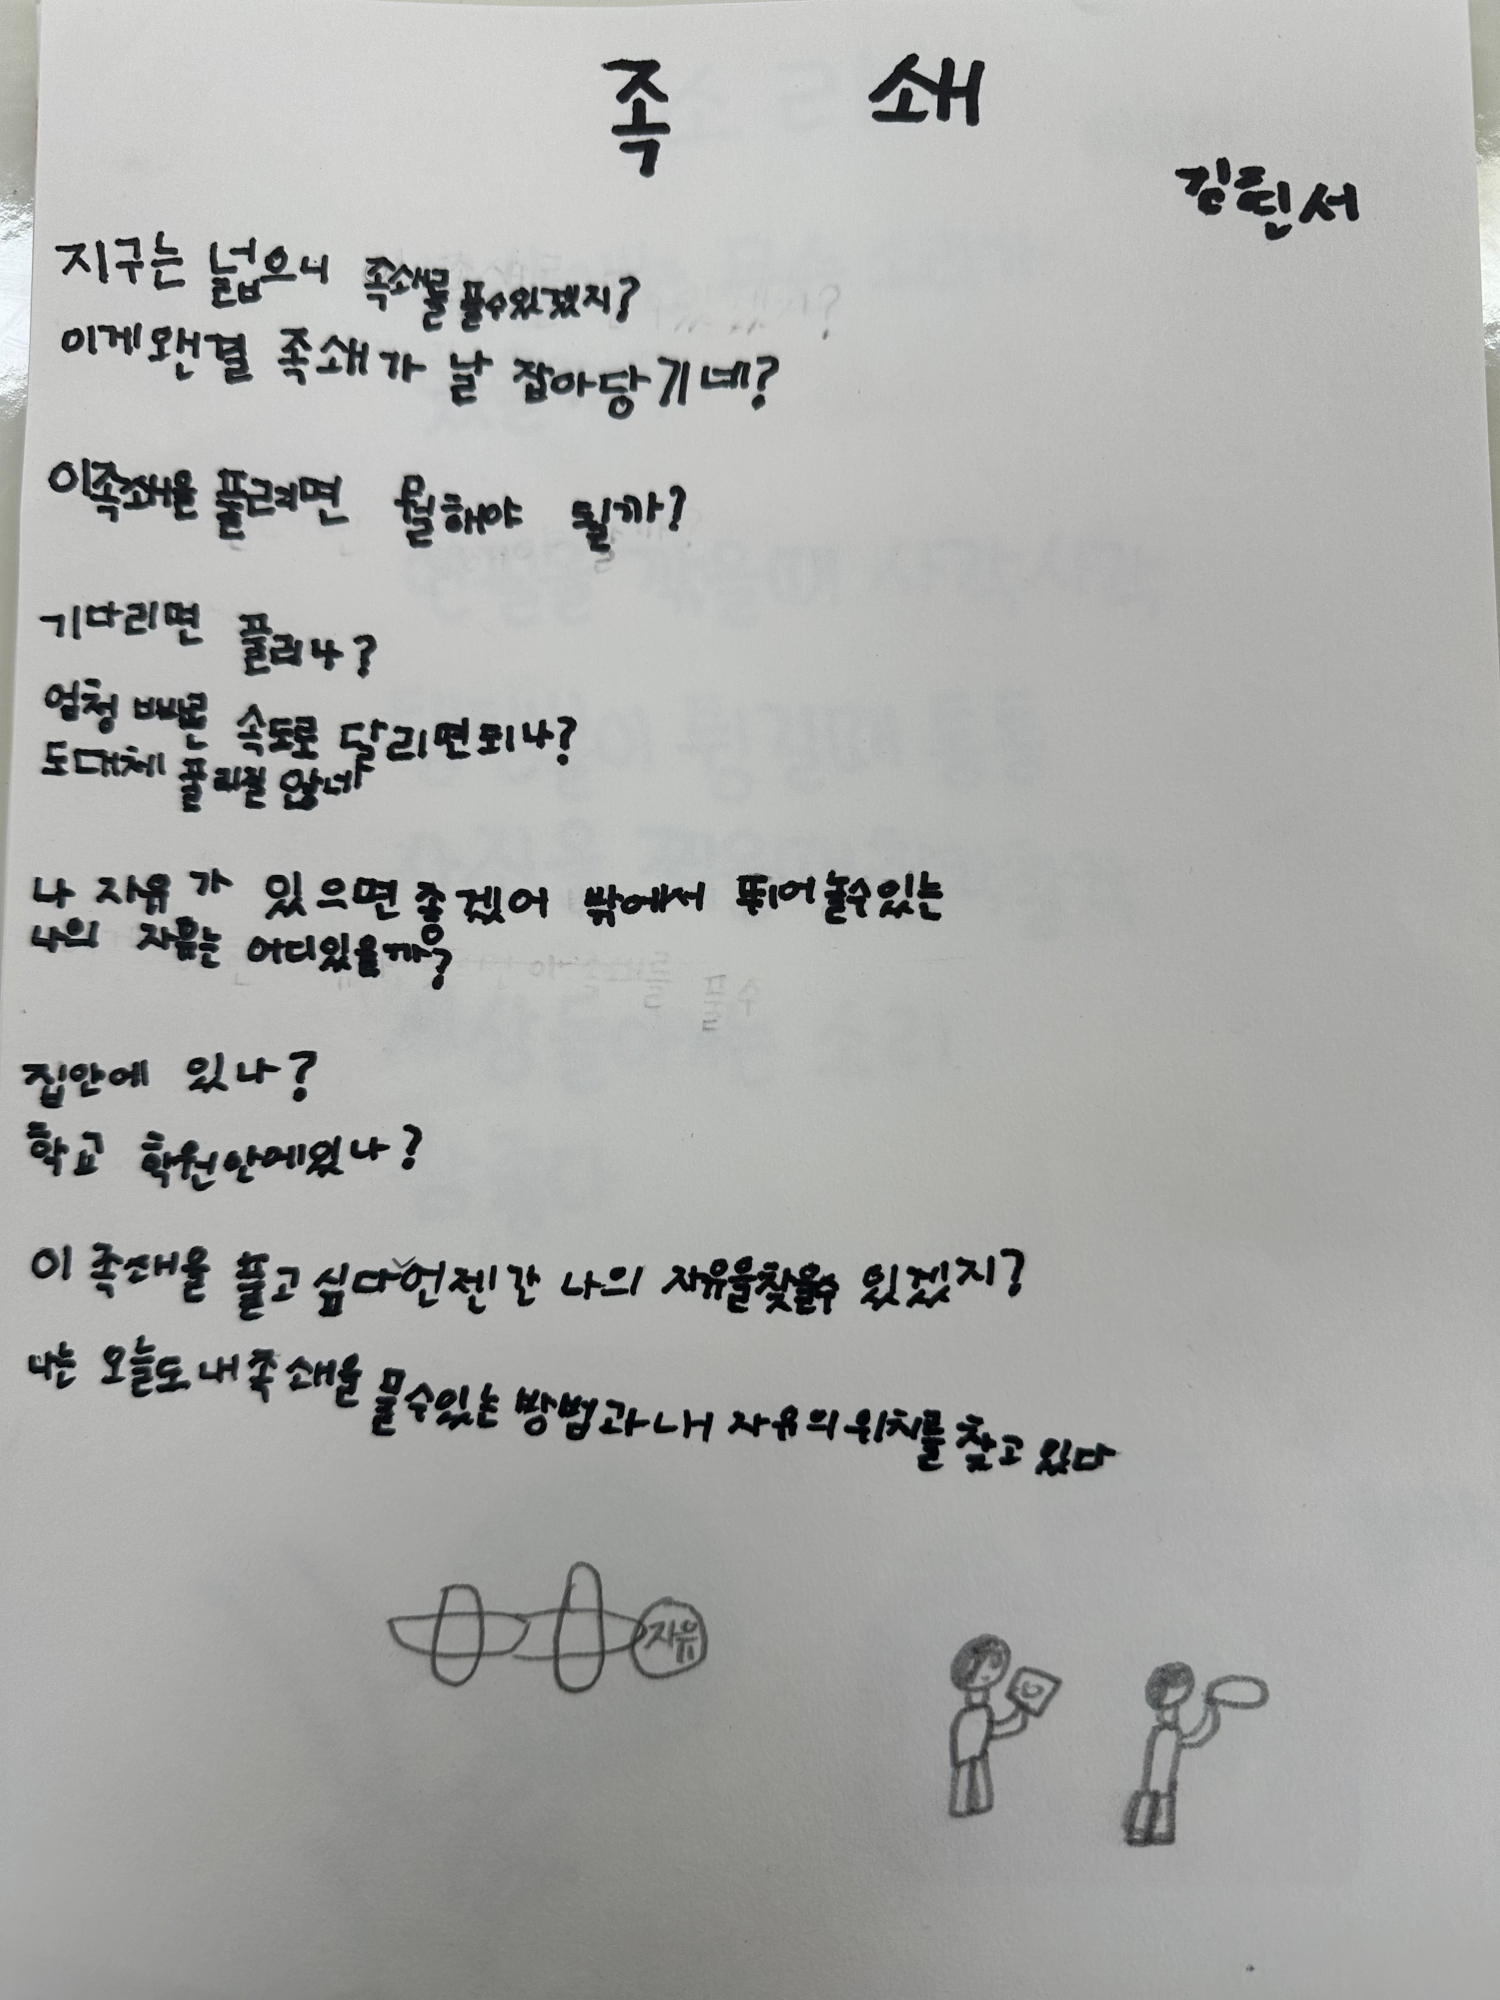 족 쇄
김틴서
지구는 넓으니 족쇄를 풀수있겠지?
이게왠걸 족쇄가 날 잡아당기네?
이족쇄을 풀려면 뭘해야 될까?
기다리면 풀리나?
엄청 빠른 속도로 달리면되나?
도대체 풀리질 않네
나 자유가 있으면 좋겠어 밖에서 뛰어놀수있는
나의 자유는 어디있을까?
집안에 있나?
학교 학원안에있나?
이 족쇄을 풀고싶다 언젠간 나의 자유을찾을수 있겠지?
나는 오늘도 내족쇄을 풀수있는 방법과 내 자유의 위치를 찾고 있다
자유